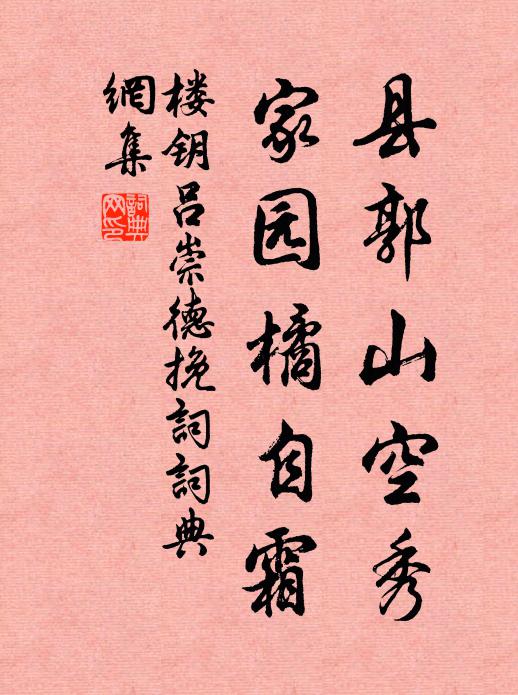 县郭山空秀
家园橘自霜
楼钥吕崇德挽詞詞典
網集
詞典
网印